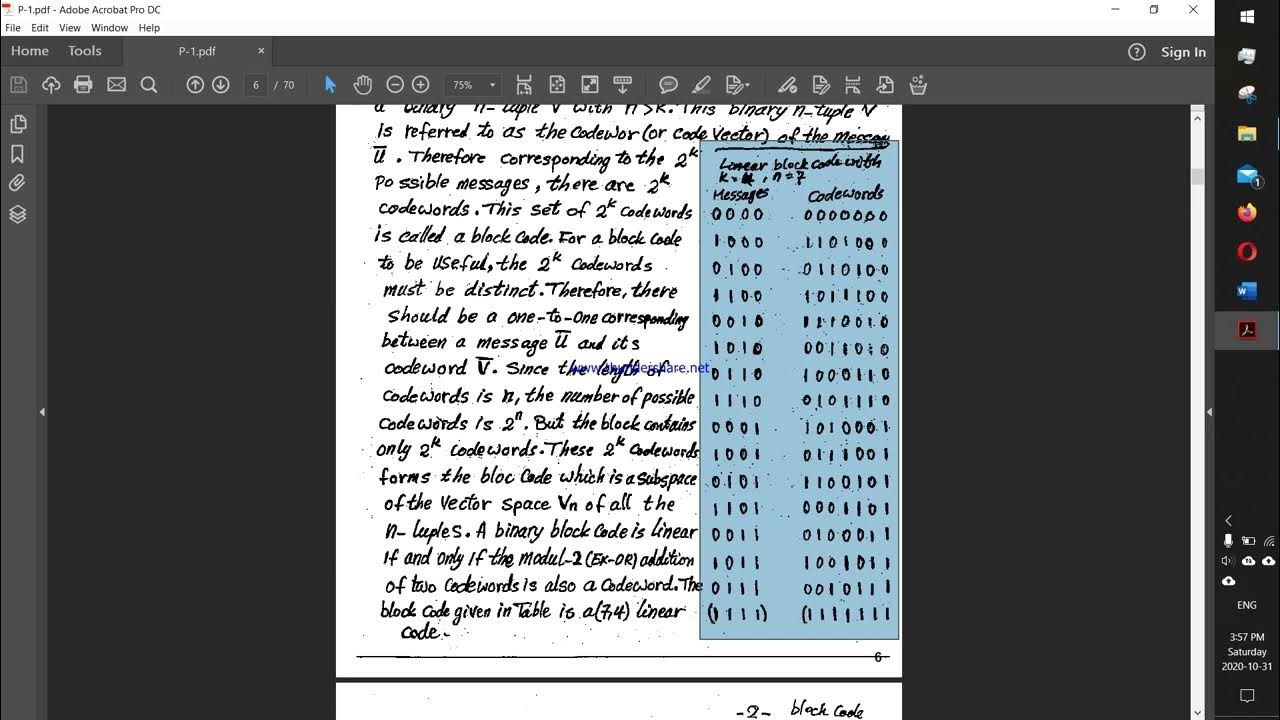 P-1.pdf - Adobe Acrobat Pro DC
File Edit View Window Help
Home Tools P-1.pdf × Sign In
6 / 70 75%
a binary n-tuple V with n>k. This binary n-tuple V
is referred to as the codewor (or code vector) of the messag
U̅. Therefore corresponding to the 2^k
possible messages, there are 2^k
codewords. This set of 2^k codewords
is called a block code. For a block code
to be useful, the 2^k codewords
must be distinct. Therefore, there
should be a one-to-one corresponding
between a message U̅ and its
codeword V̅. Since the length of
codewords is n, the number of possible
codewords is 2^n. But the block contains
only 2^k codewords. These 2^k codewords
forms the bloc code which is a subspace
of the vector space Vn of all the
n-luples. A binary block code is linear
if and only if the modul-2 (EX-OR) addition
of two codewords is also a codeword. The
block code given in Table is a (7,4) linear
code.
Linear block code with
k=4, n=7
Messages Codewords
0000 0000000
1000 1101000
0100 0110100
1100 1011100
0010 1110010
1010 0011010
0110 1000110
1110 0101110
0001 1010001
1001 0111001
0101 1100101
1101 0001101
0011 0100011
1011 1001011
0111 0010111
(1111) (1111111
6
-2- block code
1
ENG
3:57 PM
Saturday
2020-10-31